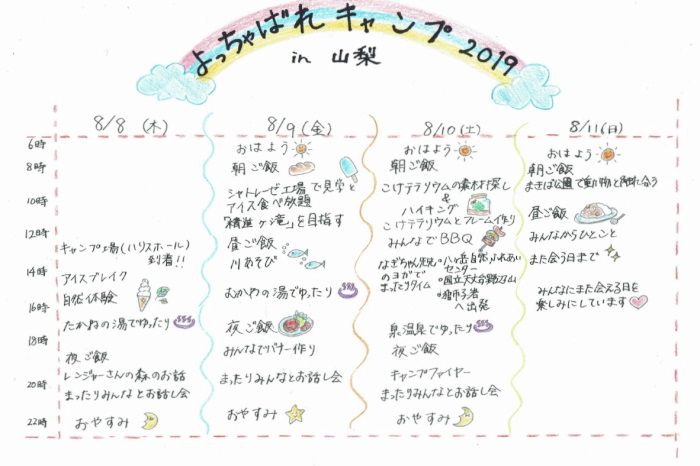 よっちゃばれキャンプ2019
in 山梨
8/8 (木)
8/9(金)
8/10(土)
8/11(日)
6時
8時
10時
12時
14時
16時
18時
20時
22時
キャンプ場(ハリスホール)
到着!!
アイスブレイク
自然体験
たかねの湯でゆったり
夜ご飯
レンジャーさんの森のお話
まったりみんなとお話し会
おやすみ
おはよう
朝ご飯
シャトレーゼ工場で見学と
アイス食べ放題
「精進ヶ滝」を目指す
昼ご飯
川あそび
むかわの湯でゆったり
夜ご飯
みんなでバナー作り
まったりみんなとお話し会
おやすみ
おはよう
朝ご飯
こけテラリウムの素材探し
&
ハイキング
こけテラリウムとフレーム作り
みんなでBBQ
なぎちゃん先生
のヨガで
まったりタイム
・八ヶ岳自然ふれあい
センター
・国立天文台野辺山
へ出発
泉温泉でゆったり
夜ご飯
キャンプファイヤー
まったりみんなとお話し会
おやすみ
おはよう
朝ご飯
まきば公園で動物と触れ合う
昼ご飯
みんなからひとこと
また会う日まで
みんなにまた会える日を
楽しみにしています